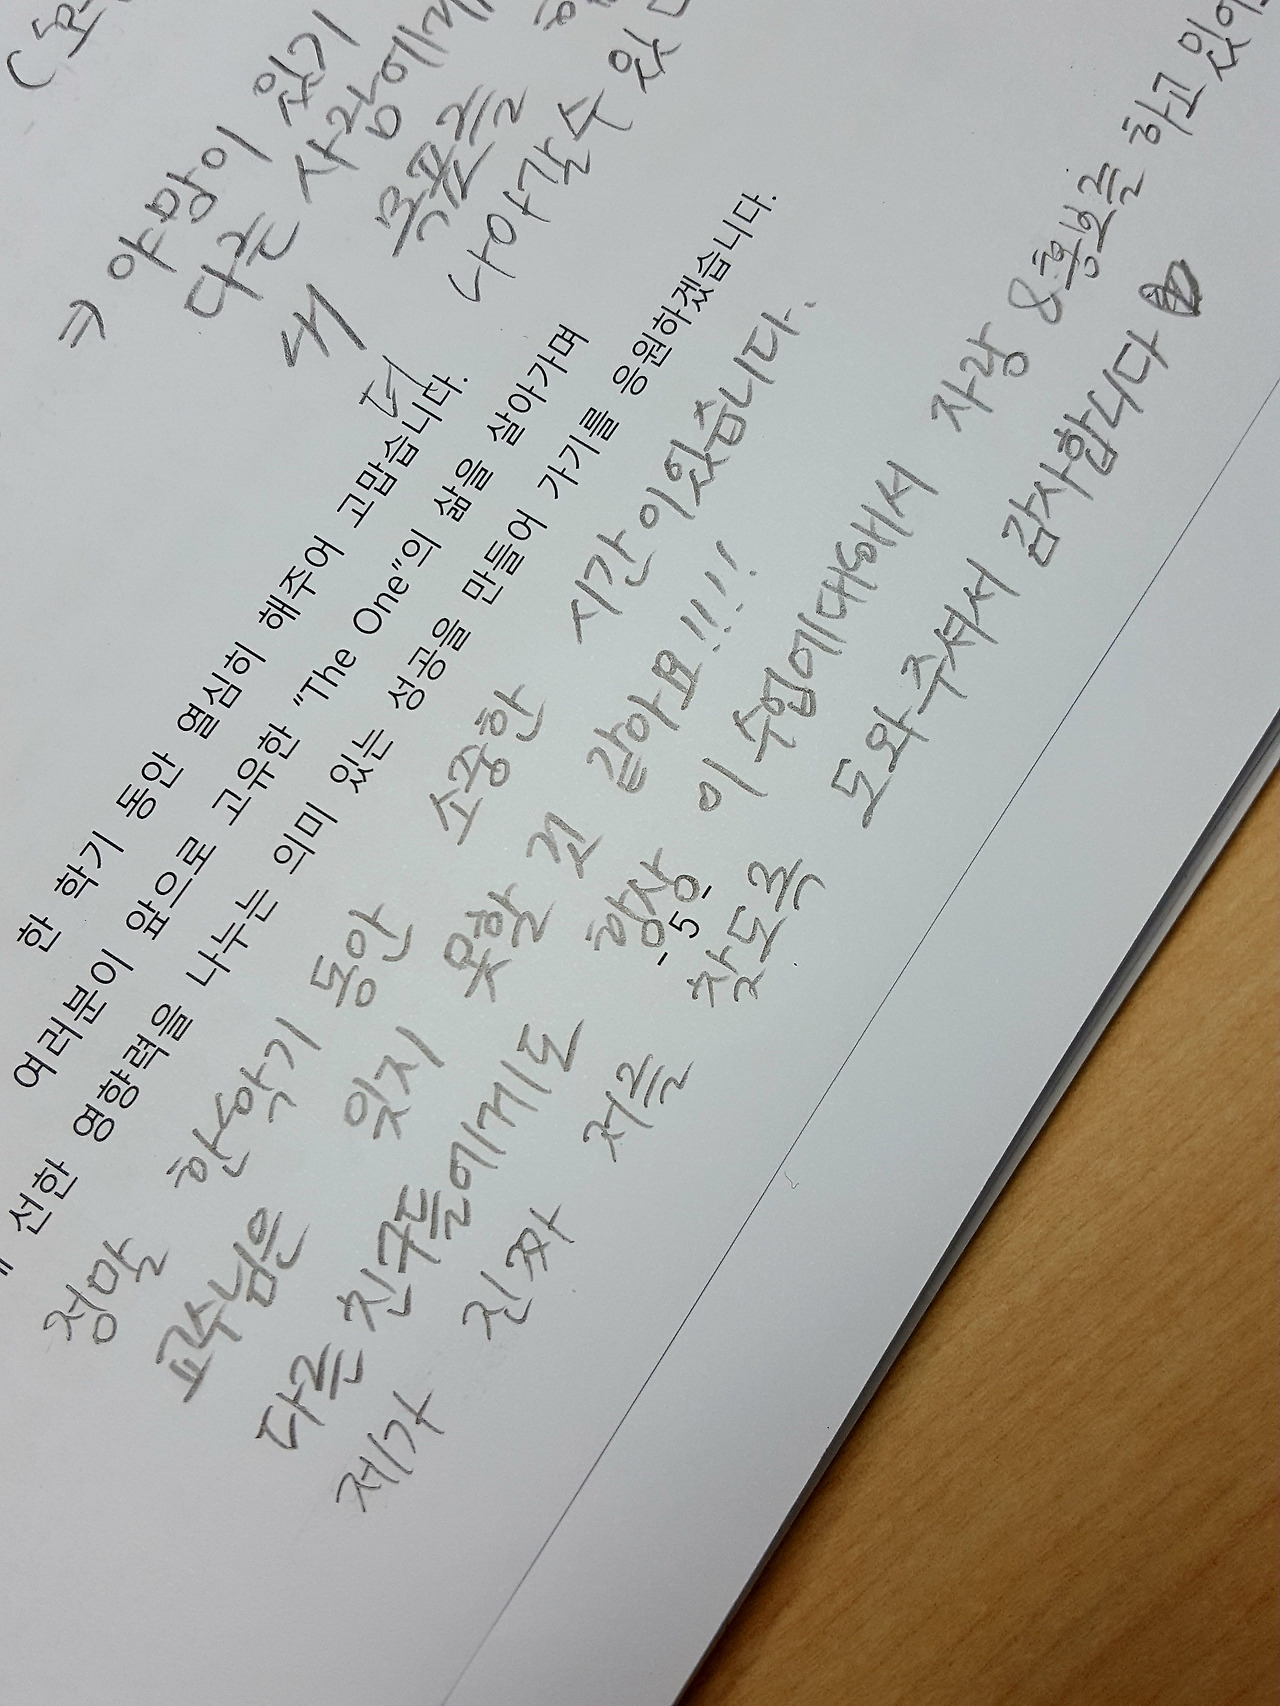 ⇒ 야망이 있기
다른 사람에게
내 목표를
더 나아갈수 있
한 학기 동안 열심히 해주어 고맙습니다.
여러분이 앞으로 고유한 "The One"의 삶을 살아가며
선한 영향력을 나누는 의미 있는 성공을 만들어 가기를 응원하겠습니다.
정말 한학기 동안 소중한 시간이었습니다.
교수님은 잊지 못할 것 같아요!!!!
다른 친구들에게도 항상 이 수업에대해서 자랑 & 홍보를 하고 있어
제가 진짜 저를 찾도록 도와주셔서 감사합니다
- 5 -